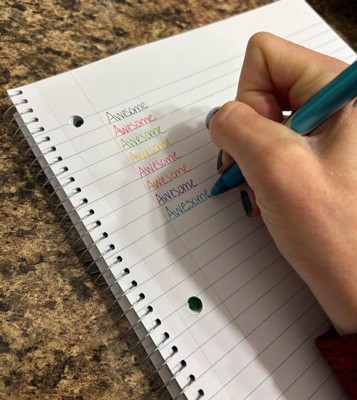 Awesome
Awesome
Awesome
Awesome
Awesome
Awesome
Awesome
Awesome